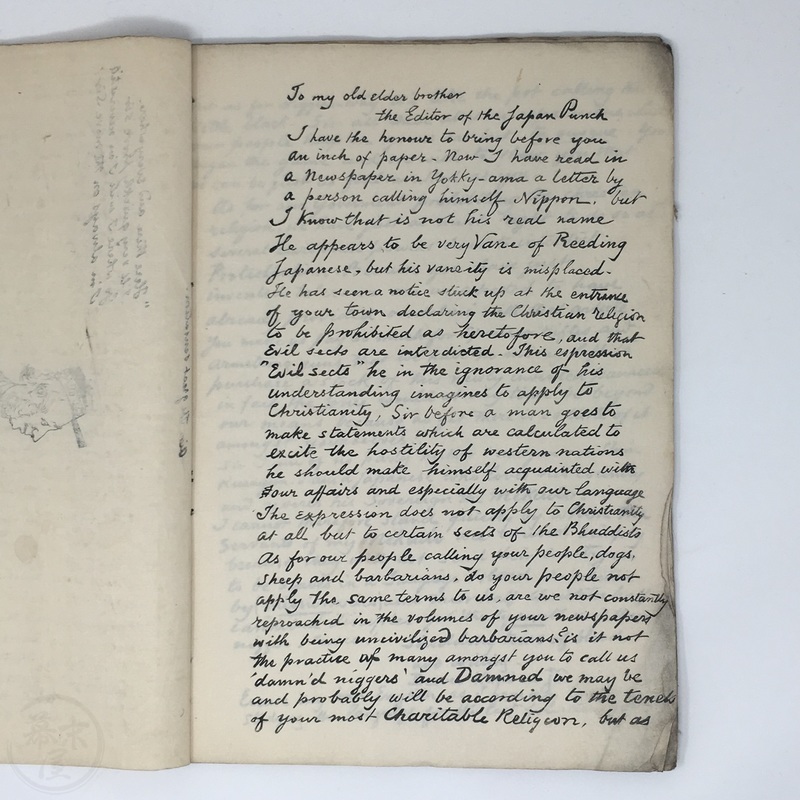 To my old elder brother
the Editor of the Japan Punch
I have the honour to bring before you
an inch of paper - Now I have read in
a Newspaper in Yokky-ama a letter by
a person calling himself Nippon, but
I Know that is not his real name
He appears to be very Vane of Reeding
Japanese, but his vaneity is misplaced -
He has seen a notice stuck up at the entrance
of your town declaring the Christian religion
to be prohibited as heretofore, and that
Evil sects are interdicted - This expression
"Evil sects" he in the ignorance of his
understanding imagines to apply to
Christianity, Sir before a man goes to
make statements which are calculated to
excite the hostility of western nations
he should make himself acquainted with
our affairs and especially with our language
The Expression does not apply to Christianity
at all but to certain sects of the Bhuddists
As for our people calling your people, dogs,
sheep and barbarians, do your people not
apply the same terms to us, are we not constantly
reproached in the volumes of your newspapers
with being uncivilized barbarians & is it not
the practice of many amongst you to call us
'damn'd niggers' and Damned we may be
and probably will be according to the tenets
of your most Charitable Religion, but as